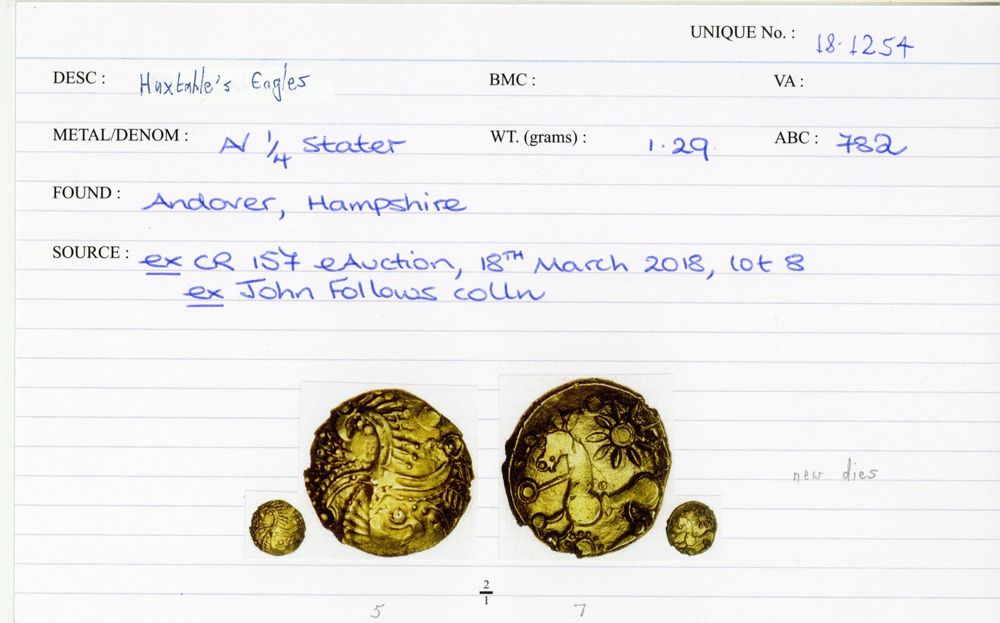 UNIQUE No. : 18·1254
DESC : Huxtable's Eagles BMC : VA :
METAL/DENOM : AV 1/4 Stater WT. (grams) : 1·29 ABC : 782
FOUND : Andover, Hampshire
SOURCE : ex CR 157 eAuction, 18TH March 2018, lot 8
ex John Follows colln
new dies
2/1
5 7